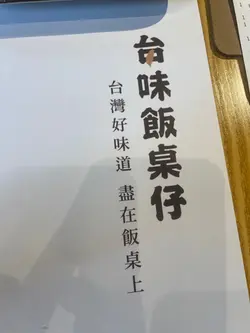 台味飯桌仔
台灣好味道 盡在飯桌上